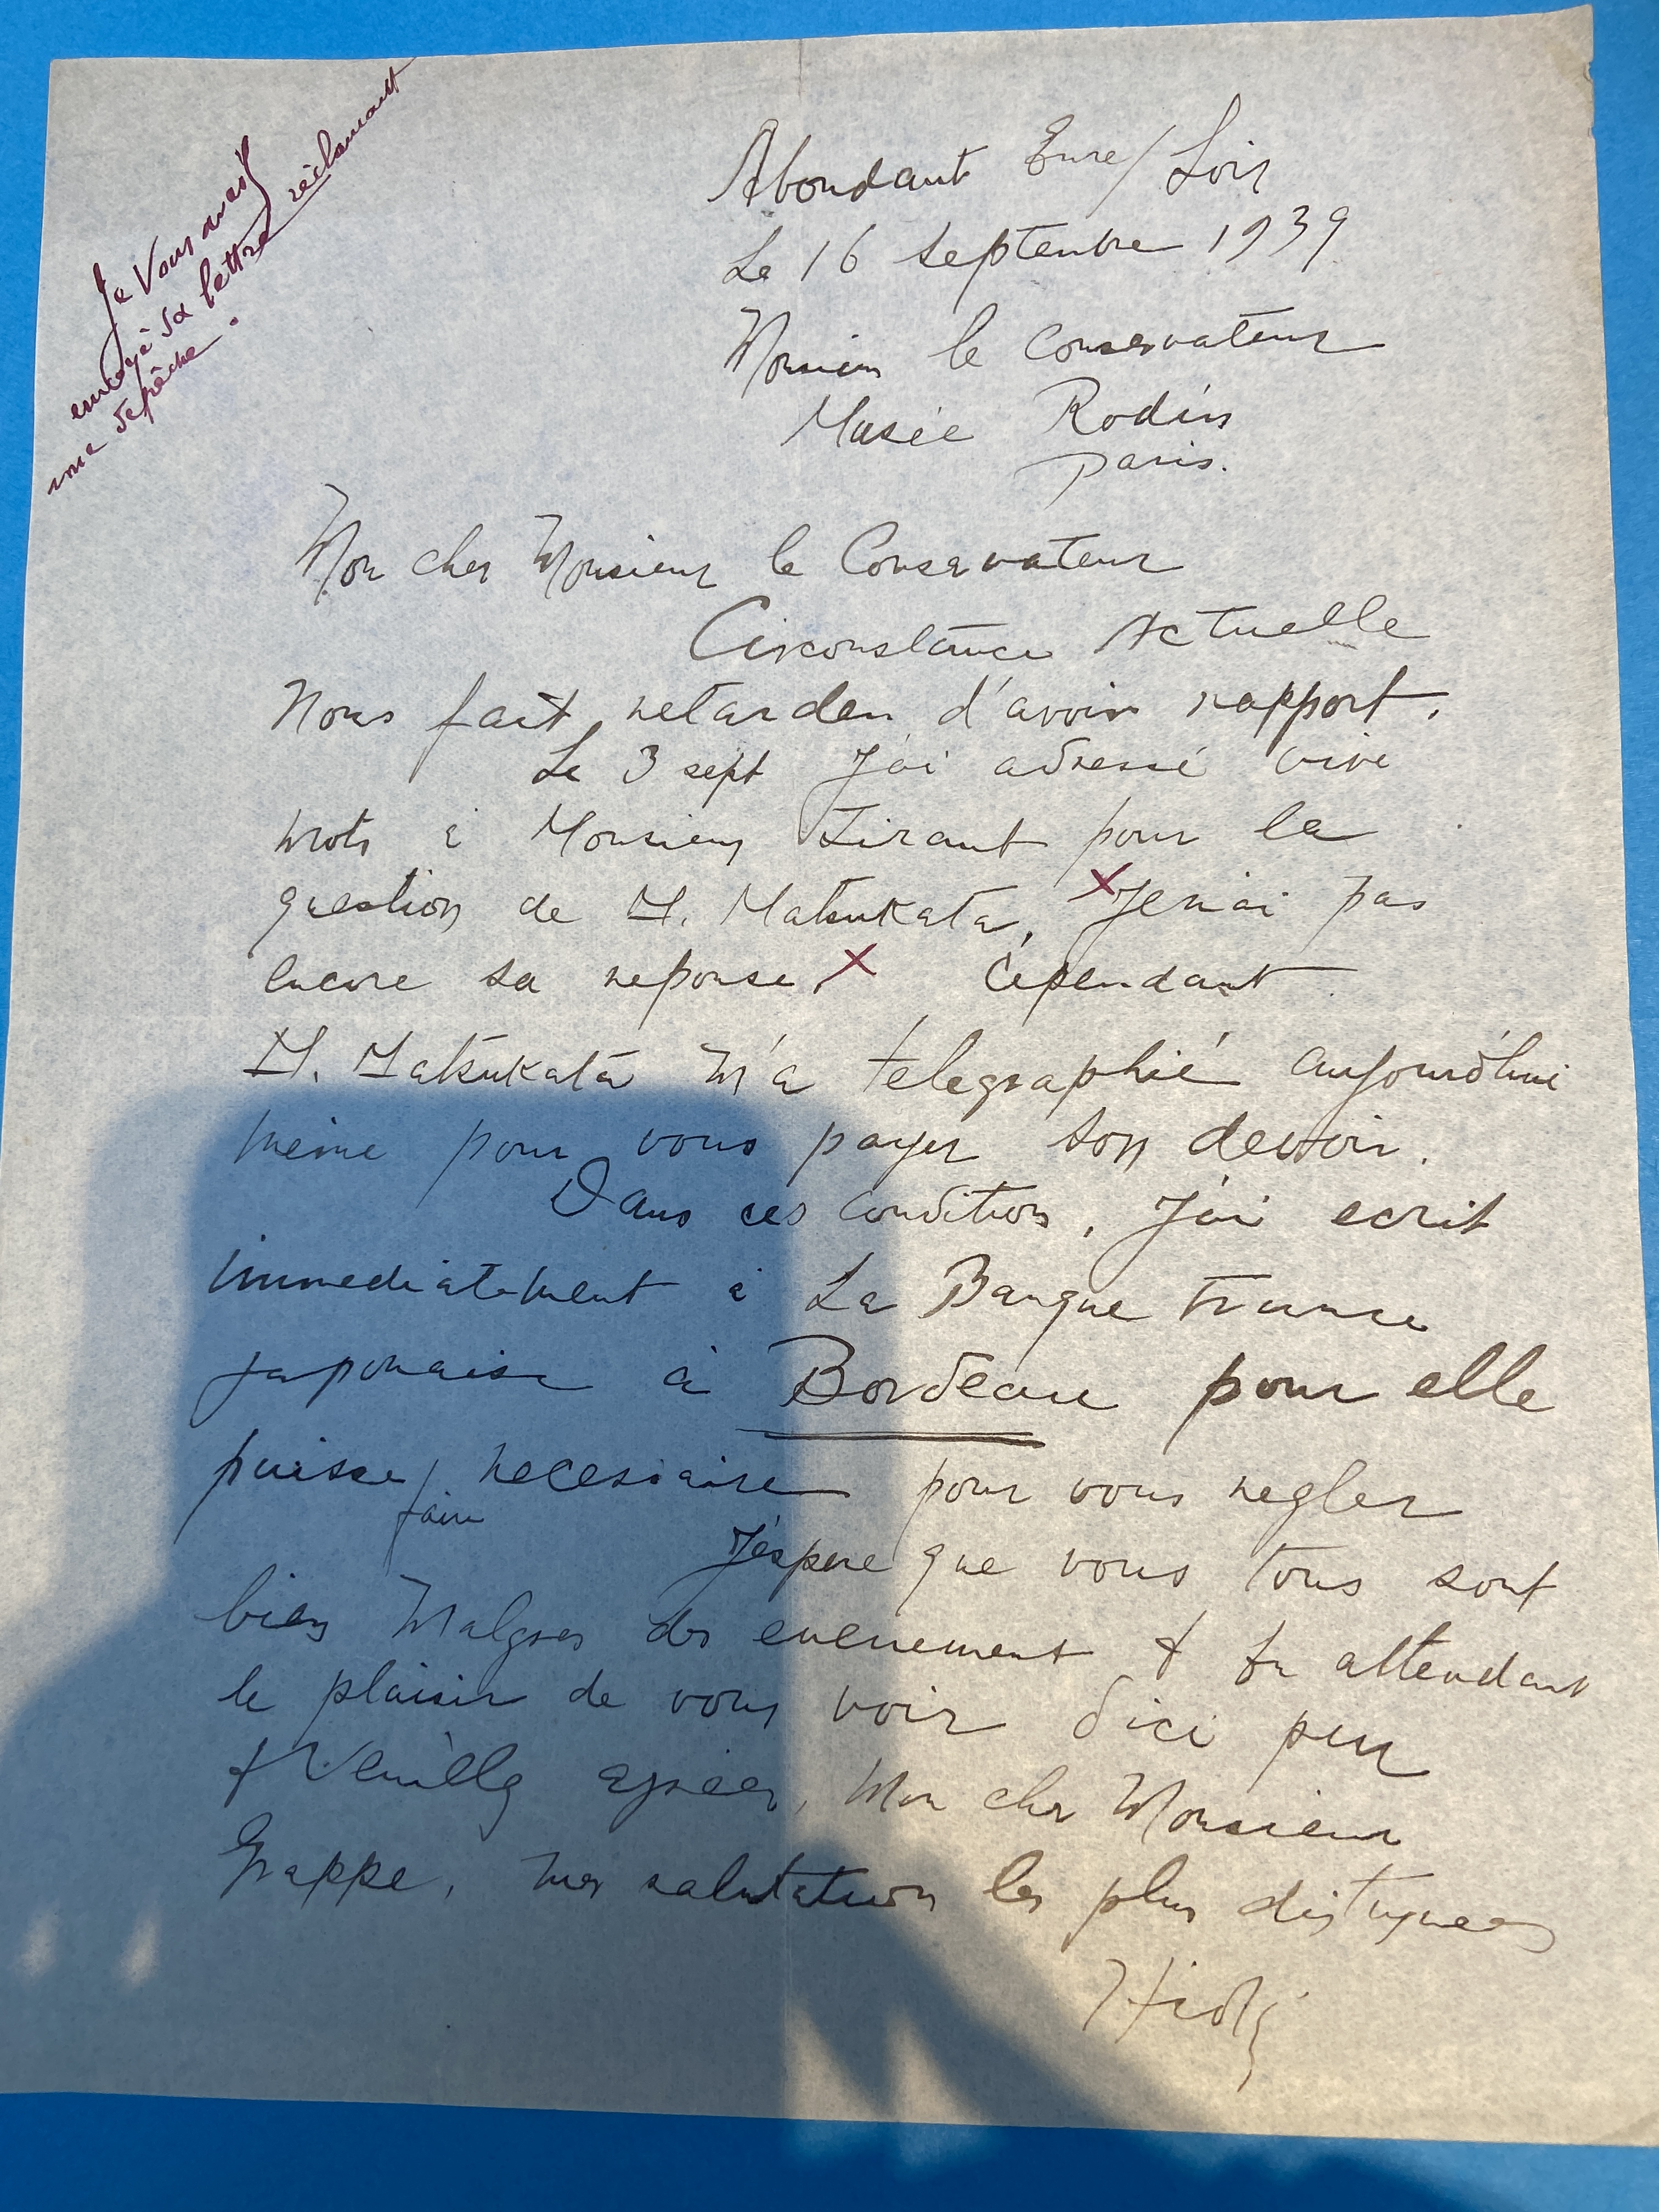 Je vous avais
envoyé sa lettre réclamant
une dépêche.
Abondant Eure/Loir
Le 16 Septembre 1939
Monsieur le Conservateur
Musée Rodin
Paris.
Mon cher Monsieur le Conservateur
Circonstance Actuelle
Nous fait retarder d'avoir rapport.
Le 3 sept J'ai adressé
mots à Monsieur Tirant pour la
question de M. Matsukata, x Je n'ai pas
encore sa reponse, x Cependant
M. Matsukata m'a telegraphié aujourd'hui
meme pour vous payer son devoir.
Dans ces condition, J'ai ecrit
immediatement à La Banque Franco
japonaise à Bordeau pour elle
puisse / necessaire pour vous regler
faire
J'éspere que vous tous sont
bien Malgres des evenement & En attendant
le plaisir de vous voir d'ici peu
& Veuillez agréer, Mon cher Monsieur
Grappe, mes salutation les plus distiguees
Hioki